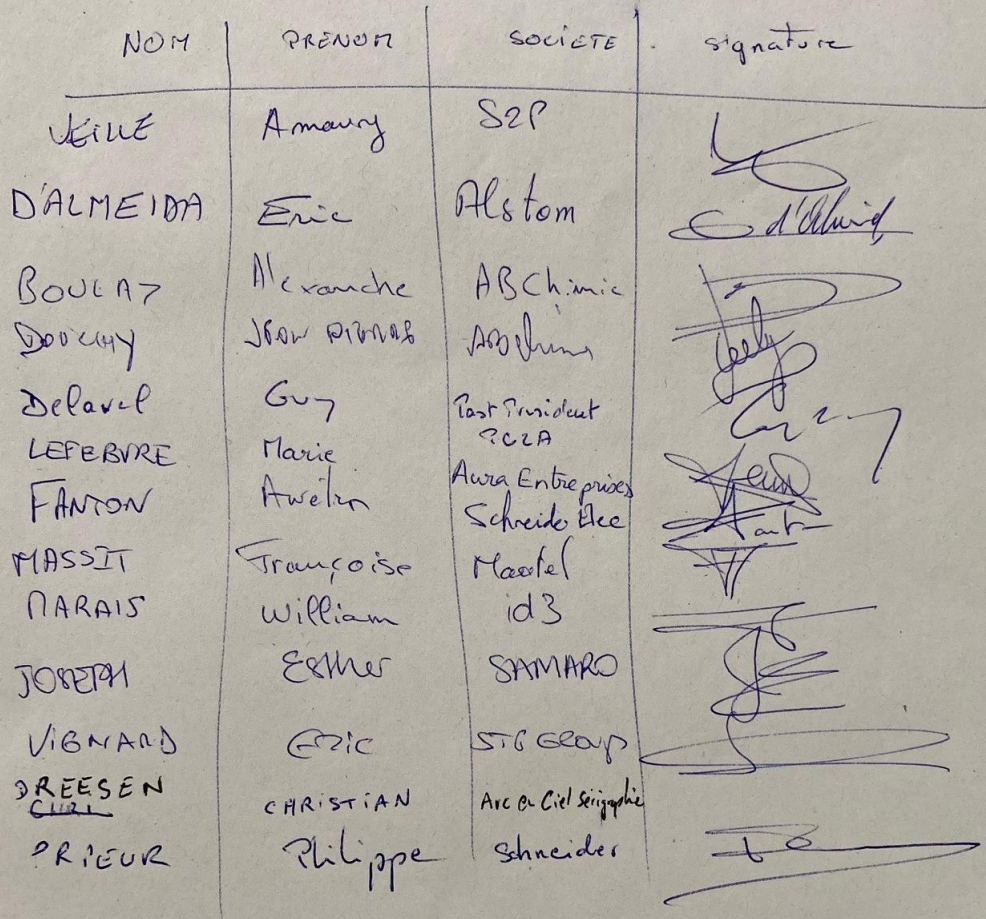 NOM PRENOM SOCIETE signature
VEILLE Amaury S2P
D'ALMEIDA Eric Alstom
BOULAY Alexandre ABChimie
DOUCHY JEAN PIERRE ABchimie
Delaval Guy Past President
PC2A
LEFEBVRE Marie Aura Entreprises
FANTON Aurélien Schneider Elec
MASSIT Françoise
MARAIS William id3
JOSEPH Esther SAMARO
VIGNARD Eric STG Group
DREESEN CHRISTIAN Arc en Ciel Sérigraphie
PRIEUR Philippe Schneider